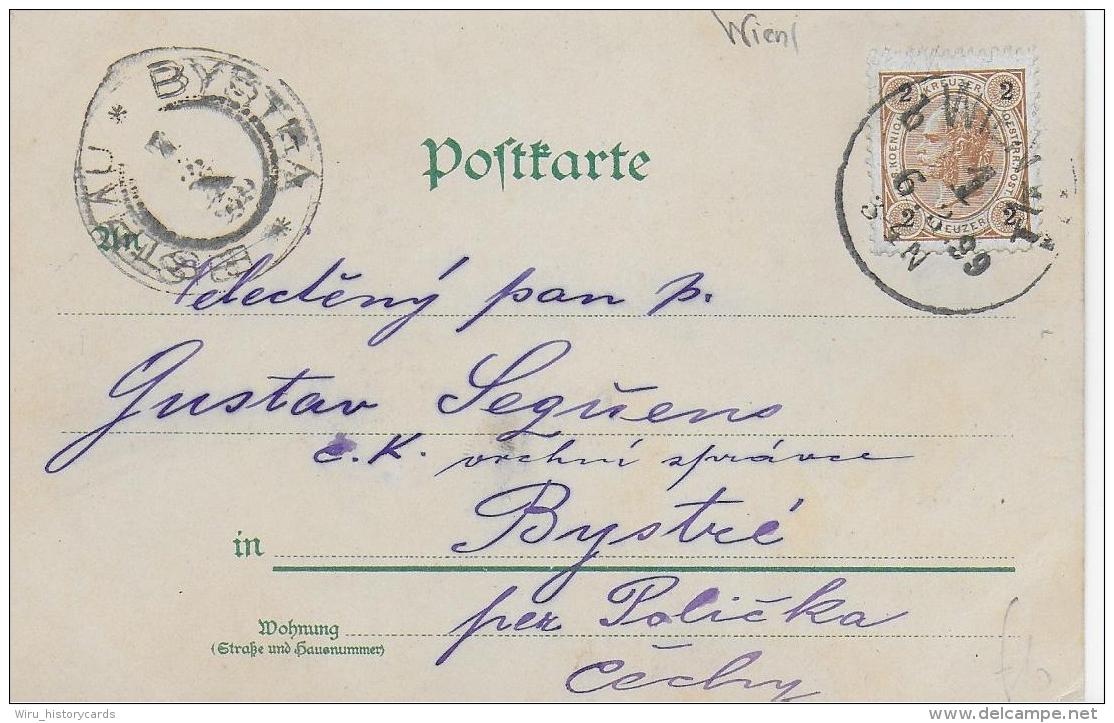 Wien
BYSTRA
BYSTRÉ
2 KREUZER 2
2 KREUZER 2
WIEN
6 6 99
3-4N
Postkarte
An
Velectěný pan p.
Gustav Seguens
c. k. vrchní správce
in Bystré
per Polička
Wohnung
(Straße und Hausnummer)
Čechy
Wiru_historycards
www.delcampe.net